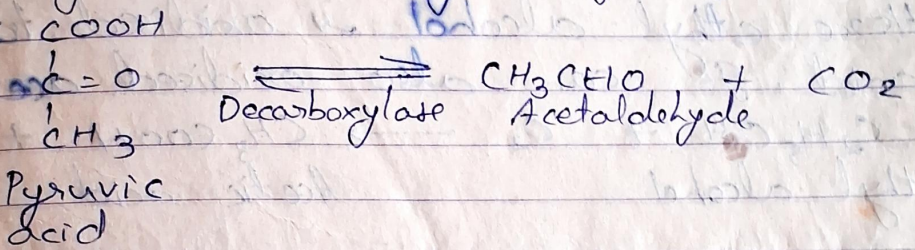 COOH
C=O ⇌ CH3CHO + CO2
Decarboxylase Acetaldehyde
CH3
Pyruvic
acid